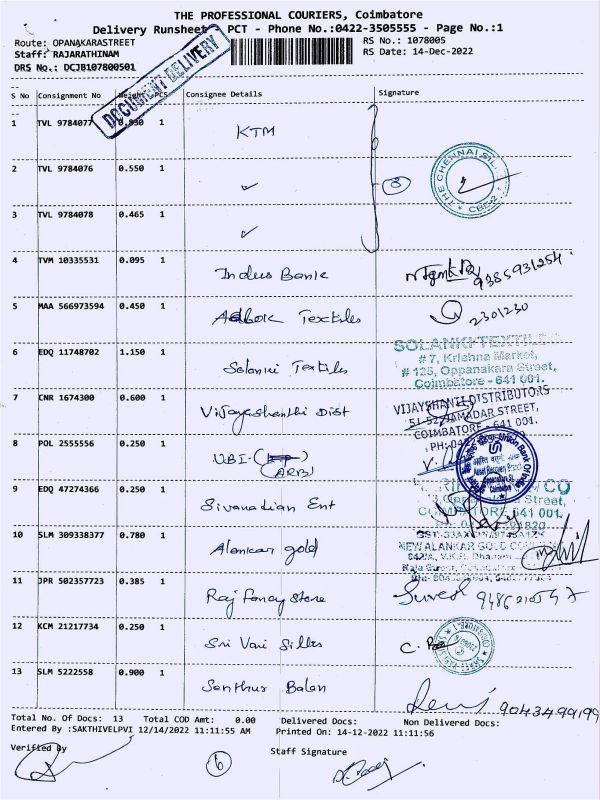 THE PROFESSIONAL COURIERS, Coimbatore
Delivery Runsheet PCT - Phone No.:0422-3505555 - Page No.:1
Route: OPANAKARASTREET
RS No.: 1078005
Staff: RAJARATHINAM
RS Date: 14-Dec-2022
DRS No.: DCJB107800501
DOCUMENT DELIVERY
S No Consignment No Weight PCS Consignee Details Signature
1 TVL 9784077 1 KTM
THE CHENNAI SILKS CBE-2
2 TVL 9784076 0.550 1 ✓ 3
3 TVL 9784078 0.465 1 ✓
4 TVM 10335531 0.095 1 Indus Bank 9385931254
5 MAA 566973594 0.450 1 Ashok Textiles 2301230
6 EDQ 11748702 1.150 1 Solanki Textiles
SOLANKI TEXTILES
# 7, Krishna Market,
# 125, Oppanakara Street,
Coimbatore - 641 001.
7 CNR 1674300 0.600 1 Vijayashanthi Dist
VIJAYSHANTI DISTRIBUTORS
JAMADAR STREET,
COIMBATORE - 641 001.
8 POL 2555556 0.250 1 UBI - (ARB)
Union Bank Of India
Asset Recovery Branch
Coimbatore
9 EDQ 47274366 0.250 1 Sivanadian Ent
CO
Street,
COIMBATORE 641 001.
10 SLM 309338377 0.780 1 Alankar gold
NEW ALANKAR GOLD
11 JPR 502357723 0.385 1 Raj Fancy Store Suresh
12 KCM 21217734 0.250 1 Sri Vari Silks
13 SLM 5222558 0.900 1 Santhus Balan Devi 9043499199
Total No. Of Docs: 13 Total COD Amt: 0.00 Delivered Docs: Non Delivered Docs:
Entered By :SAKTHIVELPVI 12/14/2022 11:11:55 AM Printed On: 14-12-2022 11:11:56
Verified By 6 Staff Signature